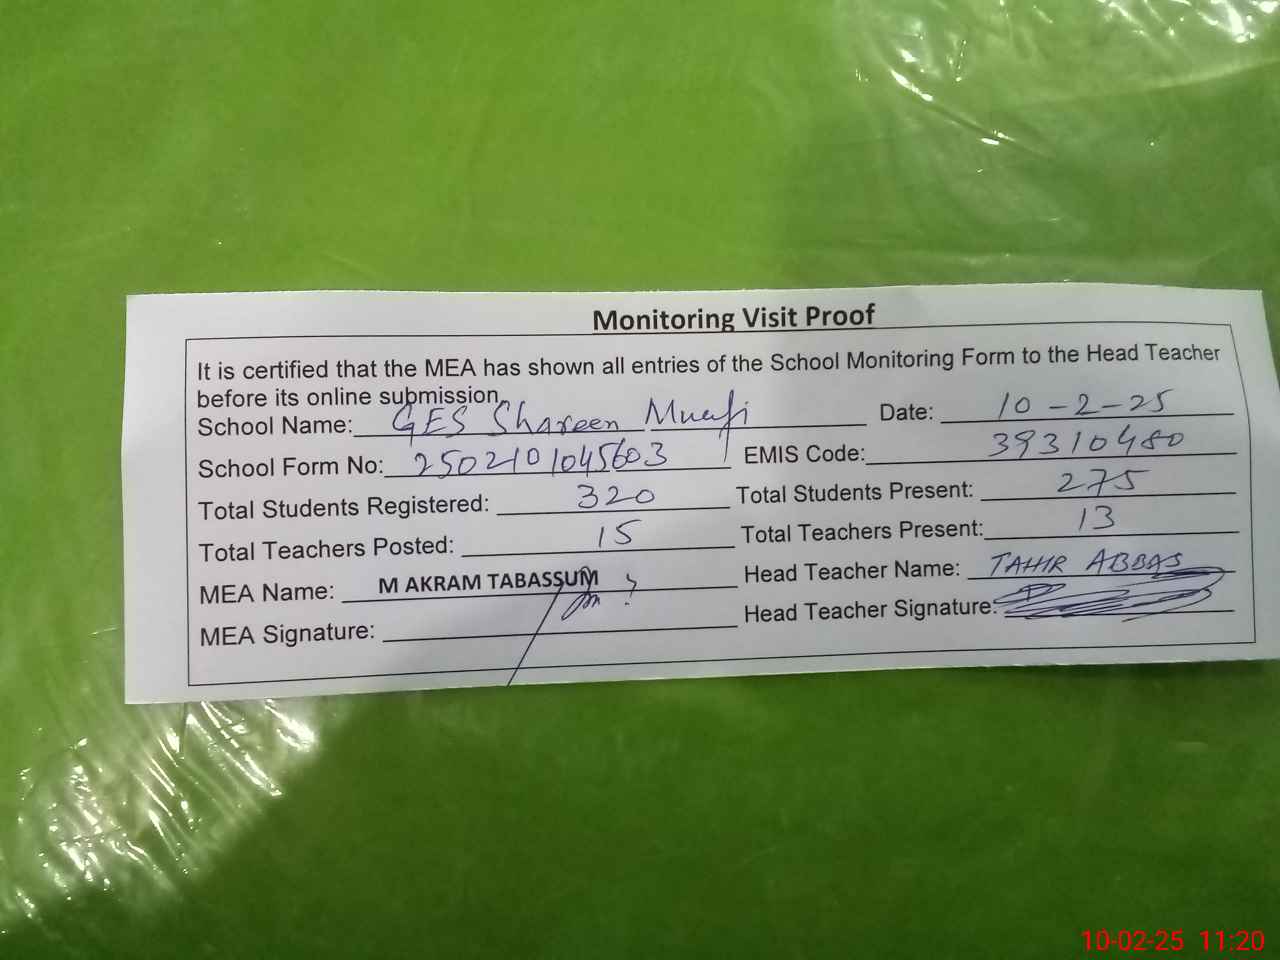 Monitoring Visit Proof
It is certified that the MEA has shown all entries of the School Monitoring Form to the Head Teacher
before its online submission.
School Name: GES Shareen Muafi Date: 10-2-25
School Form No: 2502101045603 EMIS Code: 39310480
Total Students Registered: 320 Total Students Present: 275
Total Teachers Posted: 15 Total Teachers Present: 13
MEA Name: M AKRAM TABASSUM Head Teacher Name: TAHIR ABBAS
MEA Signature: Head Teacher Signature:
10-02-25 11:20